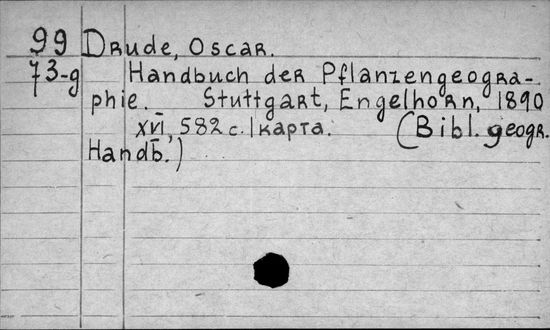 99 Drude, Oscar.
73-g Handbuch der Pflanzengeogra-
phie. Stuttgart, Engelhorn, 1890
XVI, 582 с. 1 карта. (Bibl. geogr.
Handb.)